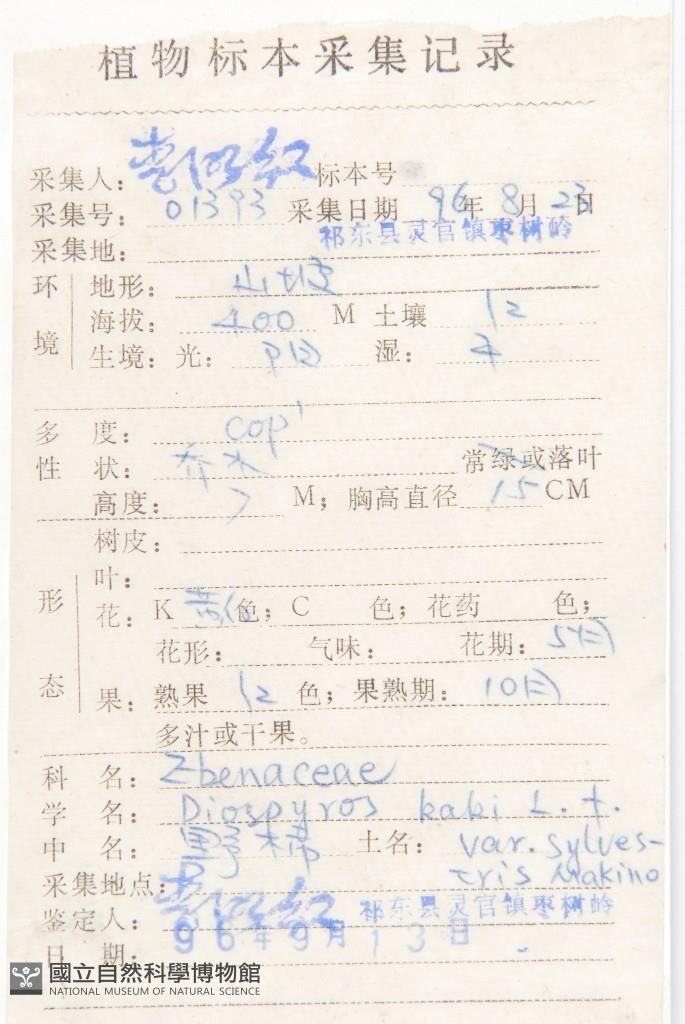 植物标本采集记录
采集人： 标本号
采集号：01393 采集日期 96年8月23日
采集地：祁东县灵官镇枣树岭
环境 地形：山坡
海拔：400 M 土壤 红
生境：光：阳 湿：干
多度：cop¹
性状：乔木 常绿或落叶
高度：7 M；胸高直径 15 CM
树皮：
形态 叶：
花：K 黄绿色；C 色；花药 色；
花形： 气味： 花期：5月
果：熟果 红 色；果熟期：10月
多汁或干果。
科名：Zbenaceae
学名：Diospyros kaki L.f.
中名：野柿 土名：var. sylves-
采集地点： tris Makino
鉴定人： 祁东县灵官镇枣树岭
日期：96年9月13日
國立自然科學博物館
NATIONAL MUSEUM OF NATURAL SCIENCE